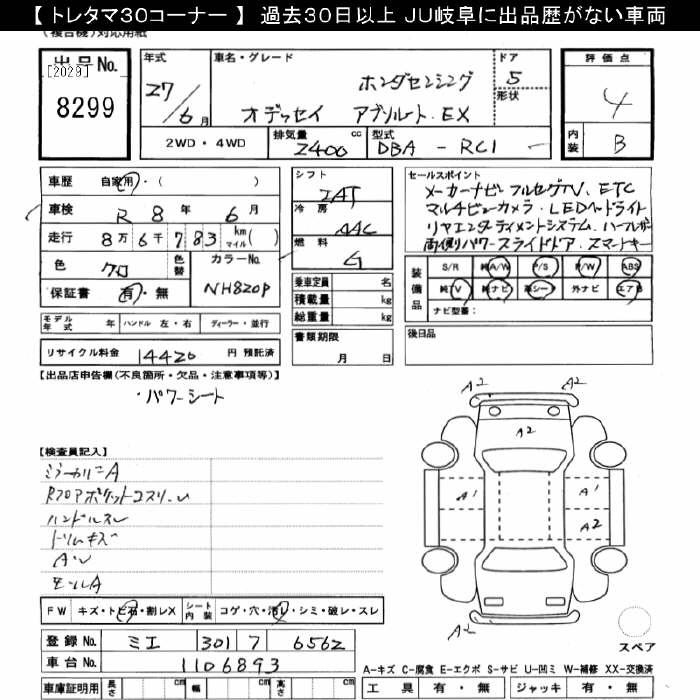 【 トレタマ30コーナー 】 過去30日以上 JU岐阜に出品歴がない車両
(複合機)対応用紙
出品No.
[2029]
8299
年式
27/6月
車名・グレード
ホンダセンシング
オデッセイ アブソルート・EX
ドア
5
形状
評価点
4
内装
B
2WD・4WD
排気量
2400 cc
型式
DBA - RC1
車歴 自家用・( )
車検 R 8年 6月
走行 8万6千783 km マイル( )
色 クロ 色替
カラーNo.
NH820P
保証書 有・無
シフト
IAT
冷房
AAC
燃料
G
乗車定員 名
積載量 kg
総重量 kg
セールスポイント
メーカーナビ フルセグTV、ETC
マルチビューカメラ・LEDヘッドライト
リヤエンタティメントシステム、ハーフレザー
両側パワースライドドア、スマートキー
装備品
S/R 純A/W P/S P/W ABS
純TV 純ナビ 革シート 外ナビ エアB
ナビ型番:
モデル年式 年 ハンドル 左・右 ディーラー・並行
リサイクル料金 14420 円 預託済
書類期限
月 日
後日品
【出品店申告欄(不良箇所・欠品・注意事項等)】
・パワーシート
【検査員記入】
ハンドルスレ
トリムキズ
モールA
A2 A2
A2
A1 A1
A2
A2
スペア
FW キズ・トビ石・割レX シート内装 コゲ・穴・汚レ・シミ・破レ・スレ
登録No. ミエ 301 7 6562
車台No. 1106893
車庫証明用 長さ cm 幅 cm 高さ cm
A-キズ C-腐食 E-エクボ S-サビ U-凹ミ W-補修 XX-交換済
工具 有・無 ジャッキ 有・無